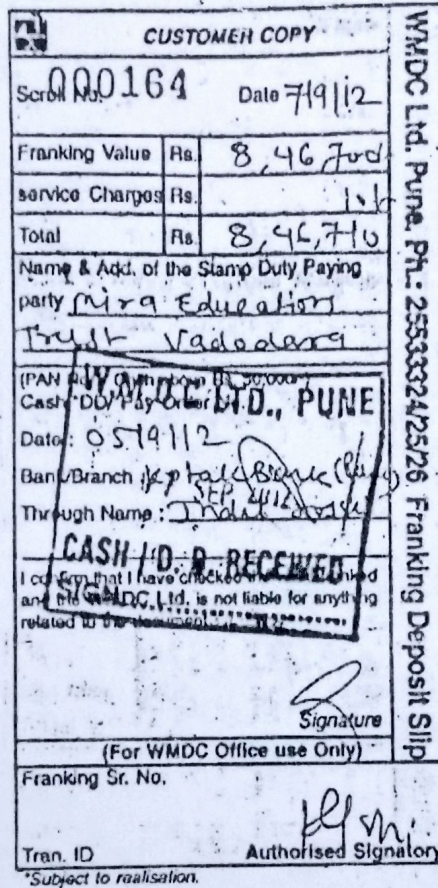 CUSTOMER COPY
Scroll No. 000164 Date 7/9/12
Franking Value Rs. 8,46,700
service Charges Rs. 10/-
Total Rs. 8,46,710
Name & Add. of the Stamp Duty Paying
party Mira Education
Trust Vadodara
(PAN
W.M.D.C. LTD., PUNE
Cash/DD/Pay Order
Date: 05/9/12
Bank/Branch: Kotak Bank
Through Name:
CASH / D. D. RECEIVED
I confirm that I have checked the
and the WMDC Ltd. is not liable for anything
related to the document
Signature
(For WMDC Office use Only)
Franking Sr. No.
Tran. ID Authorised Signatory
*Subject to realisation.
WMDC Ltd. Pune. Ph.: 25533324/25/26 Franking Deposit Slip